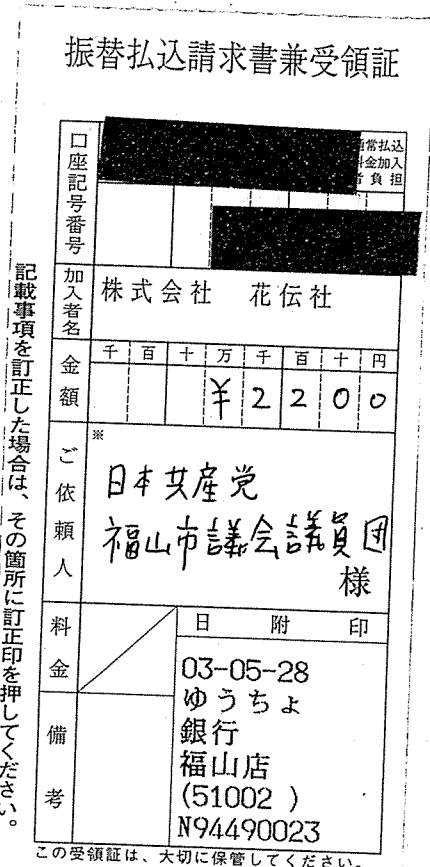 振替払込請求書兼受領証
口座記号番号
通常払込
料金加入
者負担
加入者名
株式会社 花伝社
金額
千 百 十 万 千 百 十 円
¥2200
ご依頼人
※
日本共産党
福山市議会議員団
様
料金
備考
日附印
03-05-28
ゆうちょ
銀行
福山店
(51002 )
N94490023
記載事項を訂正した場合は、その箇所に訂正印を押してください。
この受領証は、大切に保管してください。